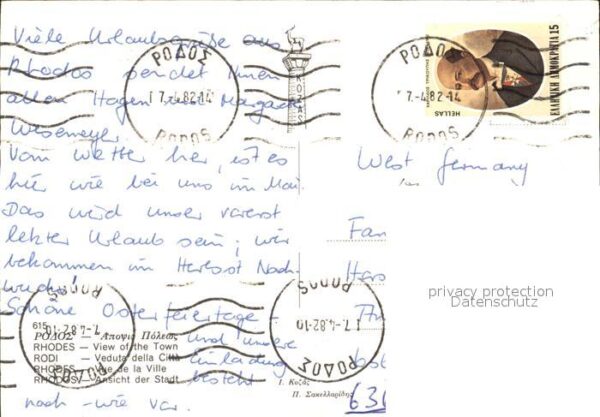 Viele Urlaubsgrüße aus
Rhodos sendet Ihnen
allen Hagen und Margarete
Wesemeyer.
Vom Wetter her, ist es
hier wie bei uns im Mai.
Das wird unser vorerst
letzter Urlaub sein; wir
bekommen im Herbst Nach-
wuchs!
Schöne Osterfeiertage!
und unsere
Einladung
besteht
noch - wie vor.
ΡΟΔΟΣ
17.-4.82-14
RODOS
ΡΟΔΟΣ
17.-4.82-14
RODOS
ΕΛΛΗΝΙΚΗ ΔΗΜΟΚΡΑΤΙΑ 15
HELLAS
West Germany
Fam
privacy protection
Datenschutz
RODOS
17.-4.82-10
ΡΟΔΟΣ
RODOS
ΡΟΔΟΣ
615
ΡΟΔΟΣ — Άποψις Πόλεως
RHODES — View of the Town
RODI — Veduta della Città
RHODES — Vue de la Ville
RHODOS — Ansicht der Stadt
Ι. Κοζάς
Π. Σακελλαρίδης
636